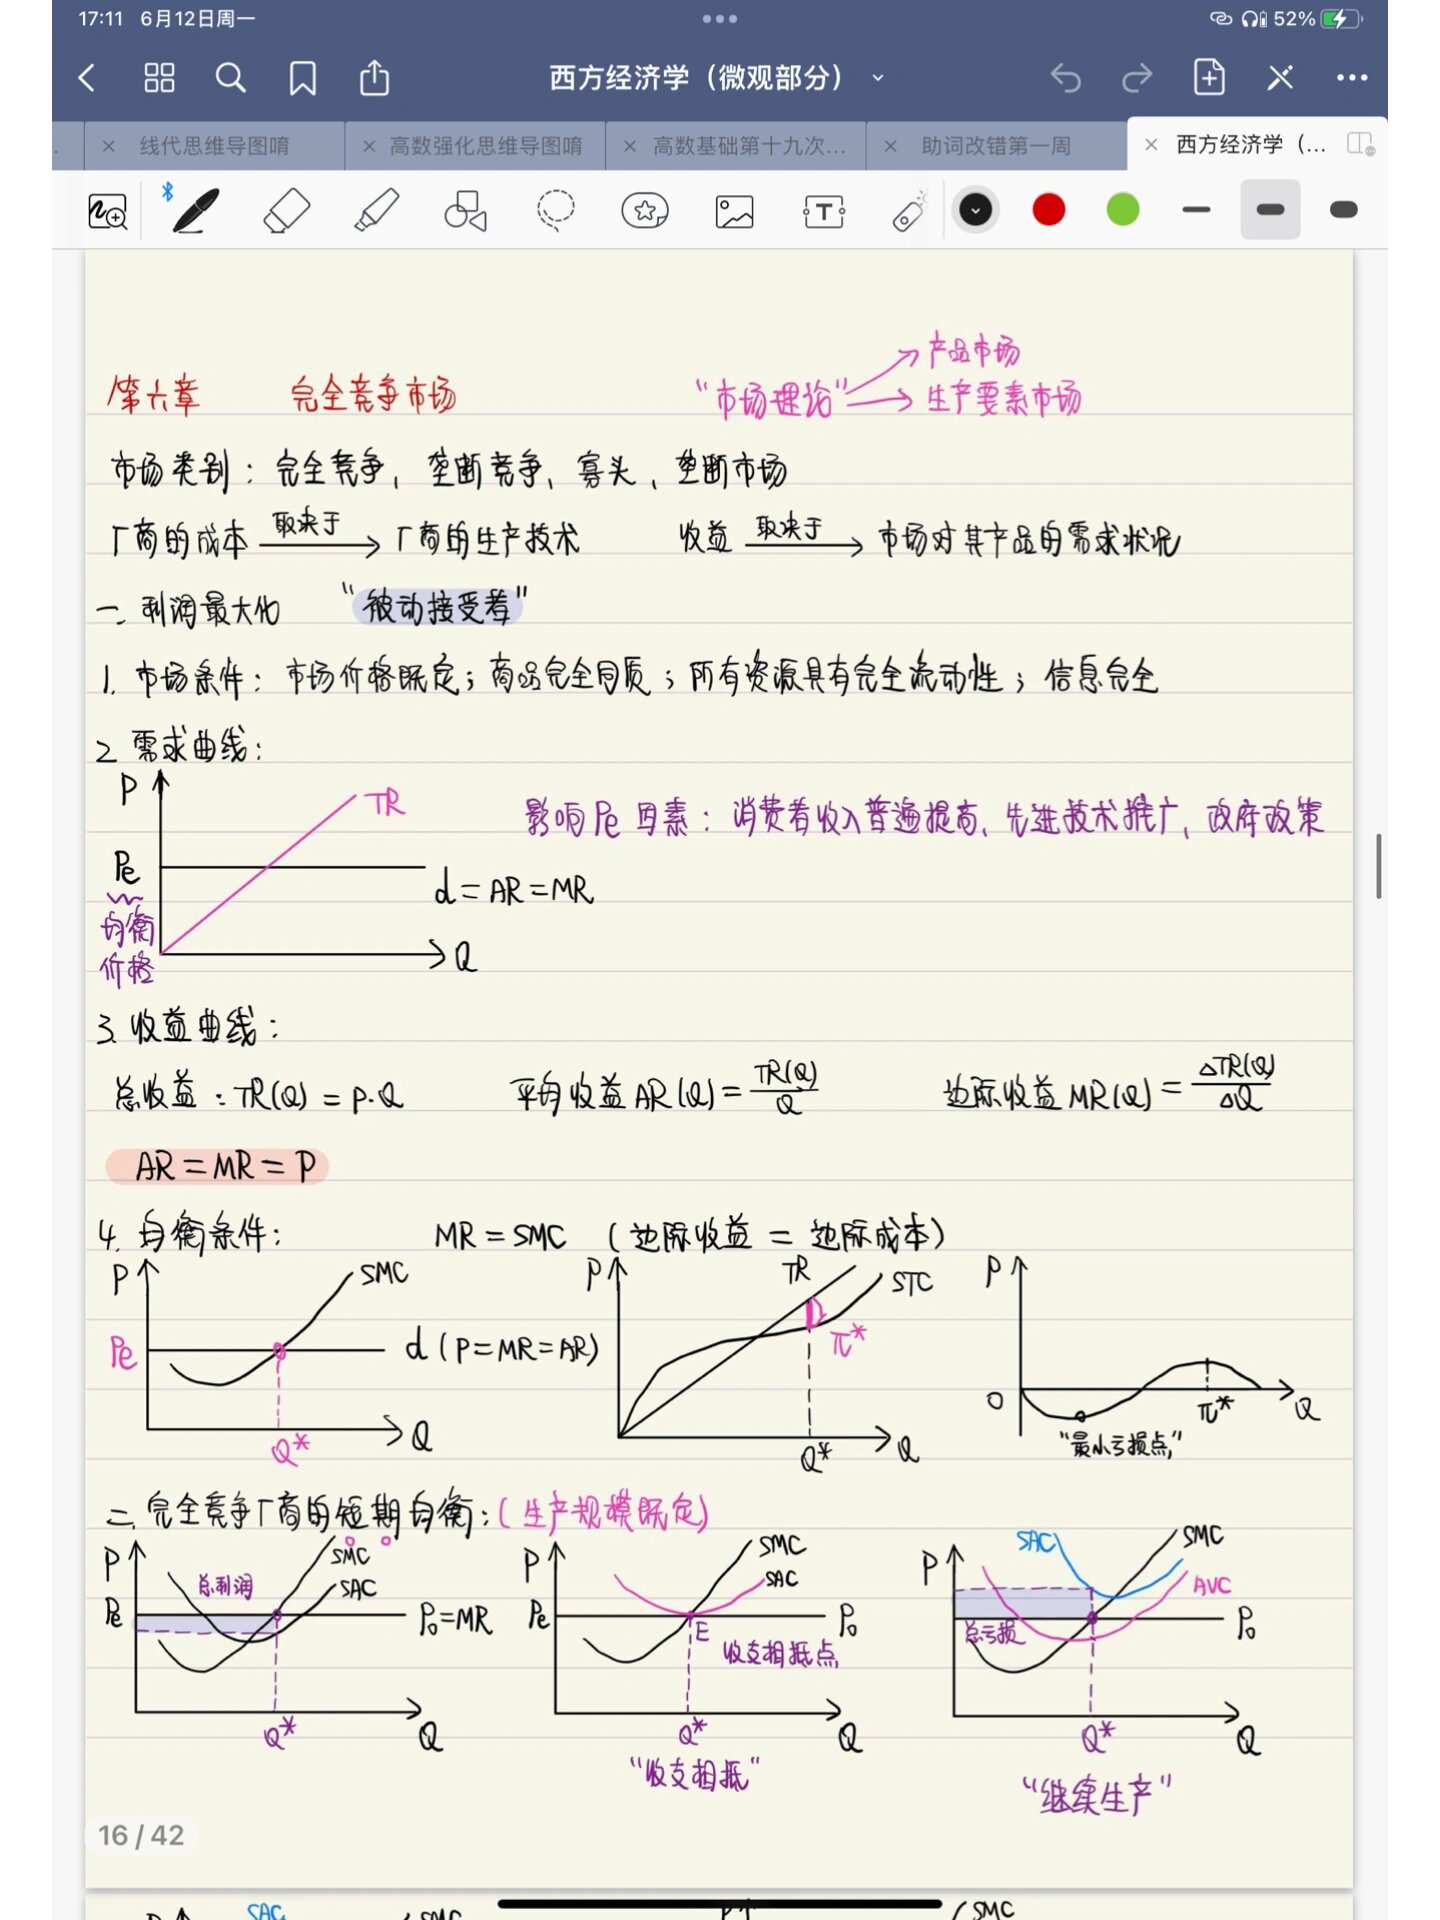 17:11 6月12日周一
52%
西方经济学（微观部分）
线代思维导图唷
高数强化思维导图唷
高数基础第十九次...
助词改错第一周
西方经济学（...
第六章 完全竞争市场
"市场理论"
产品市场
生产要素市场
市场类别：完全竞争、垄断竞争、寡头、垄断市场
厂商的成本 取决于 厂商的生产技术 收益 取决于 市场对其产品的需求状况
一. 利润最大化 "被动接受者"
1. 市场条件：市场价格既定；商品完全同质；所有资源具有完全流动性；信息完全
2. 需求曲线：
P
TR
影响Pe因素：消费者收入普遍提高、先进技术推广、政府政策
Pe
d=AR=MR
均衡
价格
Q
3. 收益曲线：
总收益：TR(Q)=P·Q 平均收益AR(Q)=TR(Q)/Q 边际收益MR(Q)=ΔTR(Q)/ΔQ
AR=MR=P
4. 均衡条件： MR=SMC （边际收益 = 边际成本）
P SMC
Pe d(P=MR=AR)
Q* Q
P TR STC
π*
Q* Q
P
O π* Q
"最小亏损点"
二. 完全竞争厂商的短期均衡：(生产规模既定)
P SMC
总利润 SAC
Pe P₀=MR
Q* Q
P SMC
SAC
Pe P₀
E
收支相抵点
Q* Q
"收支相抵"
SAC SMC
P AVC
总亏损 P₀
Q* Q
"继续生产"
16 / 42
SAC SMC P SMC